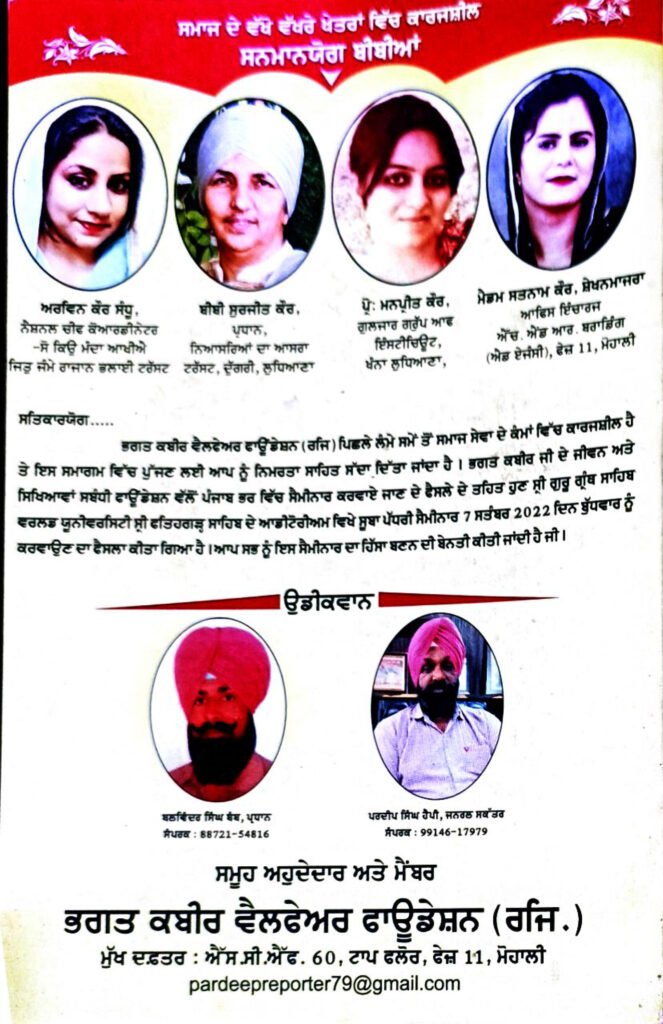 ਸਮਾਜ ਦੇ ਵੱਖੋ ਵੱਖਰੇ ਖੇਤਰਾਂ ਵਿੱਚ ਕਾਰਜਸ਼ੀਲ
ਸਨਮਾਨਯੋਗ ਬੀਬੀਆਂ
ਅਰਵਿਨ ਕੌਰ ਸੰਧੂ,
ਨੈਸ਼ਨਲ ਚੀਫ ਕੋਆਰਡੀਨੇਟਰ
-ਸੋ ਕਿਉ ਮੰਦਾ ਆਖੀਐ
ਜਿਤੁ ਜੰਮੇ ਰਾਜਾਨ ਭਲਾਈ ਟਰੱਸਟ
ਬੀਬੀ ਸੁਰਜੀਤ ਕੌਰ,
ਪ੍ਰਧਾਨ,
ਨਿਆਸਰਿਆਂ ਦਾ ਆਸਰਾ
ਟਰੱਸਟ, ਦੁੱਗਰੀ, ਲੁਧਿਆਣਾ
ਪ੍ਰੋ: ਮਨਪ੍ਰੀਤ ਕੌਰ,
ਗੁਲਜਾਰ ਗਰੁੱਪ ਆਵ
ਇੰਸਟੀਚਿਊਟ,
ਖੰਨਾ ਲੁਧਿਆਣਾ,
ਮੈਡਮ ਸਤਨਾਮ ਕੌਰ, ਸ਼ੇਖਨਮਾਜਰਾ
ਆਫਿਸ ਇੰਚਾਰਜ
ਐੱਚ. ਐਂਡ ਆਰ. ਬਰਾਂਡਿੰਗ
(ਐਡ ਏਜੰਸੀ), ਫੇਜ਼ 11, ਮੋਹਾਲੀ
ਸਤਿਕਾਰਯੋਗ.....
ਭਗਤ ਕਬੀਰ ਵੈਲਫੇਅਰ ਫਾਊਂਡੇਸ਼ਨ (ਰਜਿ) ਪਿਛਲੇ ਲੰਮੇ ਸਮੇਂ ਤੋਂ ਸਮਾਜ ਸੇਵਾ ਦੇ ਕੰਮਾਂ ਵਿੱਚ ਕਾਰਜਸ਼ੀਲ ਹੈ
ਤੇ ਇਸ ਸਮਾਗਮ ਵਿੱਚ ਪੁੱਜਣ ਲਈ ਆਪ ਨੂੰ ਨਿਮਰਤਾ ਸਾਹਿਤ ਸੱਦਾ ਦਿੱਤਾ ਜਾਂਦਾ ਹੈ । ਭਗਤ ਕਬੀਰ ਜੀ ਦੇ ਜੀਵਨ ਅਤੇ
ਸਿਖਿਆਵਾਂ ਸਬੰਧੀ ਫਾਊਂਡੇਸ਼ਨ ਵੱਲੋਂ ਪੰਜਾਬ ਭਰ ਵਿੱਚ ਸੈਮੀਨਾਰ ਕਰਵਾਏ ਜਾਣ ਦੇ ਫੈਸਲੇ ਦੇ ਤਹਿਤ ਹੁਣ ਸ੍ਰੀ ਗੁਰੂ ਗ੍ਰੰਥ ਸਾਹਿਬ
ਵਰਲਡ ਯੂਨੀਵਰਸਿਟੀ ਸ੍ਰੀ ਫਤਿਹਗੜ੍ਹ ਸਾਹਿਬ ਦੇ ਆਡੀਟੋਰੀਅਮ ਵਿਖੇ ਸੂਬਾ ਪੱਧਰੀ ਸੈਮੀਨਾਰ 7 ਸਤੰਬਰ 2022 ਦਿਨ ਬੁੱਧਵਾਰ ਨੂੰ
ਕਰਵਾਉਣ ਦਾ ਫੈਸਲਾ ਕੀਤਾ ਗਿਆ ਹੈ । ਆਪ ਸਭ ਨੂੰ ਇਸ ਸੈਮੀਨਾਰ ਦਾ ਹਿੱਸਾ ਬਣਨ ਦੀ ਬੇਨਤੀ ਕੀਤੀ ਜਾਂਦੀ ਹੈ ਜੀ ।
ਉਡੀਕਵਾਨ
ਬਲਵਿੰਦਰ ਸਿੰਘ ਬੰਬ, ਪ੍ਰਧਾਨ
ਸੰਪਰਕ : 88721-54816
ਪਰਦੀਪ ਸਿੰਘ ਹੈਪੀ, ਜਨਰਲ ਸਕੱਤਰ
ਸੰਪਰਕ : 99146-17979
ਸਮੂਹ ਅਹੁਦੇਦਾਰ ਅਤੇ ਮੈਂਬਰ
ਭਗਤ ਕਬੀਰ ਵੈਲਫੇਅਰ ਫਾਊਂਡੇਸ਼ਨ (ਰਜਿ.)
ਮੁੱਖ ਦਫ਼ਤਰ : ਐੱਸ.ਸੀ.ਐੱਫ. 60, ਟਾਪ ਫਲੋਰ, ਫੇਜ਼ 11, ਮੋਹਾਲੀ
pardeepreporter79@gmail.com